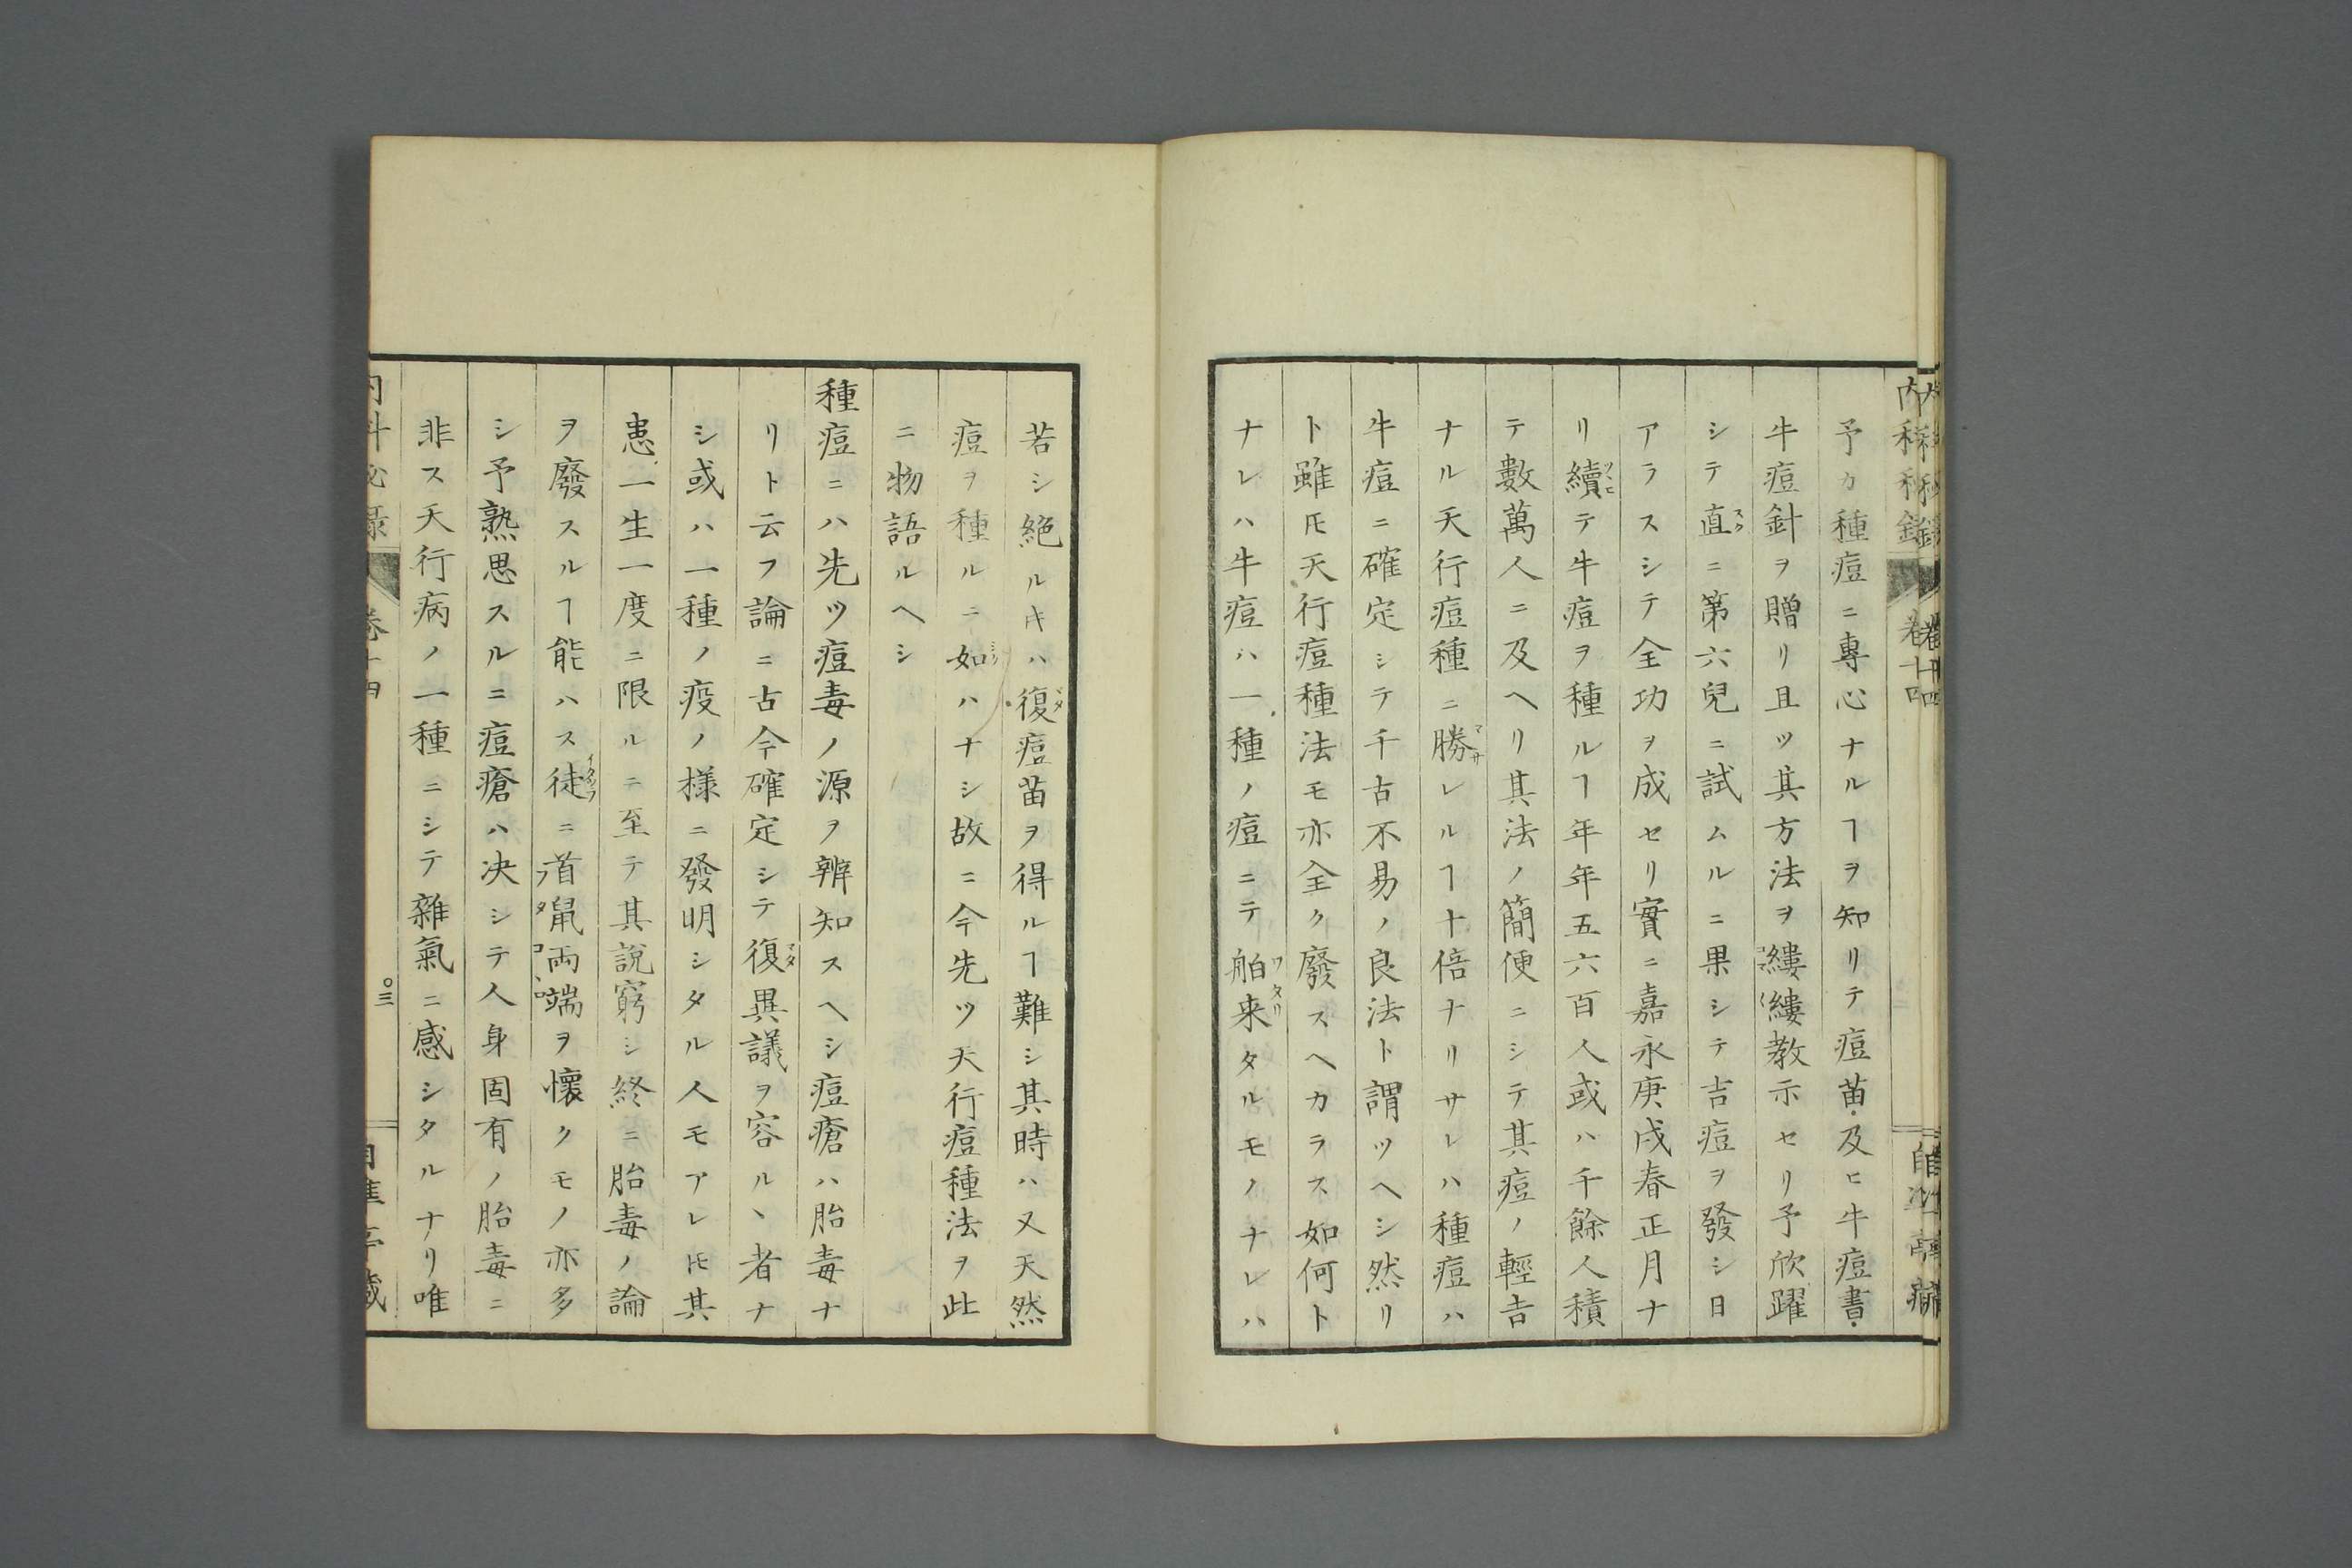 予カ種痘ニ專心ナルヿヲ知リテ痘苗及ヒ牛痘書
牛痘針ヲ贈リ且ツ其方法ヲ縷縷教示セリ予欣躍
シテ直ニ第六兒ニ試ムルニ果シテ吉痘ヲ發シ日
アラスシテ全功ヲ成セリ實ニ嘉永庚戌春正月ナ
リ續テ牛痘ヲ種ルヿ年年五六百人或ハ千餘人積
テ數萬人ニ及ヘリ其法ノ簡便ニシテ其痘ノ輕吉
ナル天行痘種ニ勝レルヿ十倍ナリサレハ種痘ハ
牛痘ニ確定シテ千古不易ノ良法ト謂ツヘシ然リ
ト雖𪜈天行痘種法モ亦全ク廢スヘカラス如何ト
ナレハ牛痘ハ一種ノ痘ニテ舶来タルモノナレハ
若シ絶ルキハ復痘苗ヲ得ルヿ難シ其時ハ又天然
痘ヲ種ルニ如ハナシ故ニ今先ツ天行痘種法ヲ此
ニ物語ルヘシ
種痘ニハ先ツ痘毒ノ源ヲ辨知スヘシ痘瘡ハ胎毒ナ
リト云フ論ニ古今確定シテ復異議ヲ容ルヽ者ナ
シ或ハ一種ノ疫ノ様ニ發明シタル人モアレ𪜈其
患一生一度ニ限ルニ至テ其説窮シ終ニ胎毒ノ論
ヲ廢スルヿ能ハス徒ニ首鼠両端ヲ懷クモノ亦多
シ予熟思スルニ痘瘡ハ决シテ人身固有ノ胎毒ニ
非ス天行病ノ一種ニシテ雜氣ニ感シタルナリ唯
内科秘録
卷十四
〇三